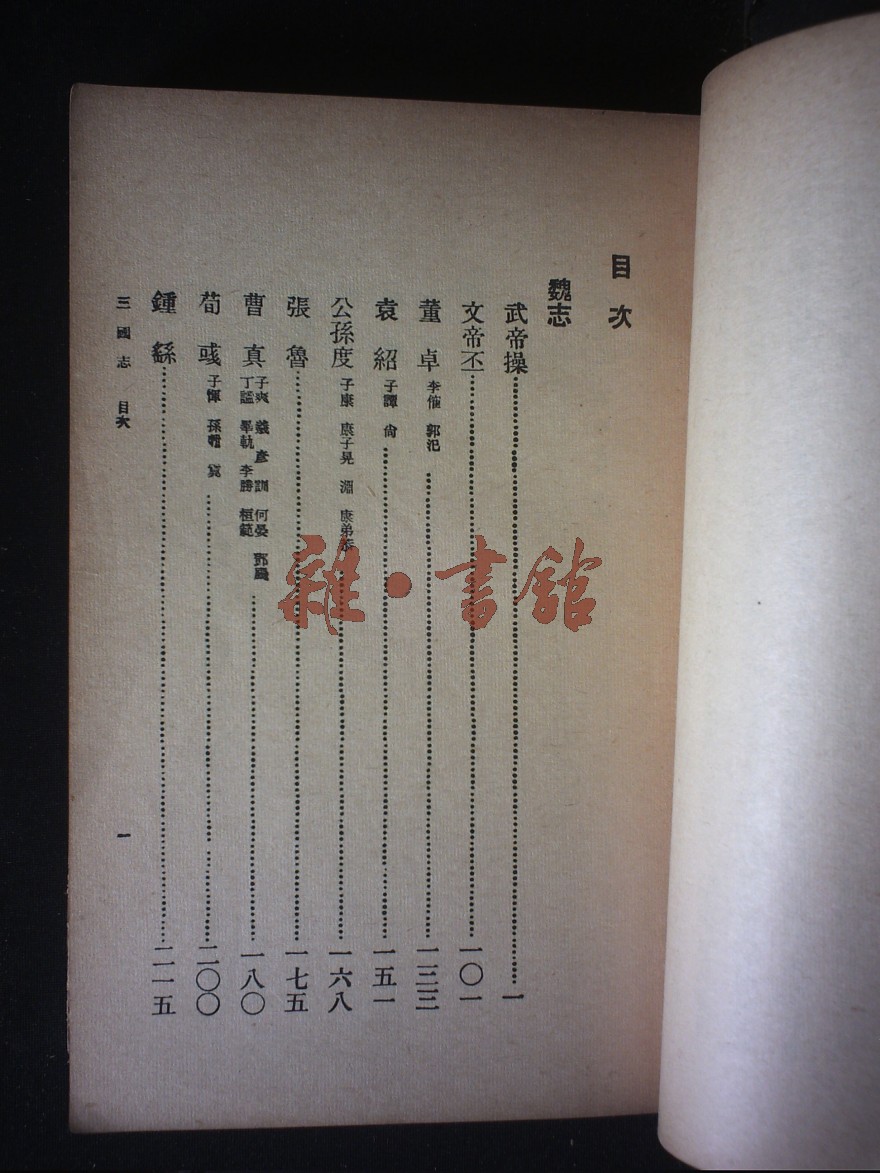 目次
魏志
武帝操……一
文帝丕……一〇一
董卓 李傕 郭汜……一三三
袁紹 子譚 尙……一五一
公孫度 子康 康子晃 淵 康弟恭……一六八
張魯……一七五
曹真 子爽 羲 彥 訓 何晏 鄧颺 丁謐 畢軌 李勝 桓範……一八〇
荀彧 子惲 孫 寓……二〇〇
鍾繇……二一五
三國志 目次
一
雜·書館